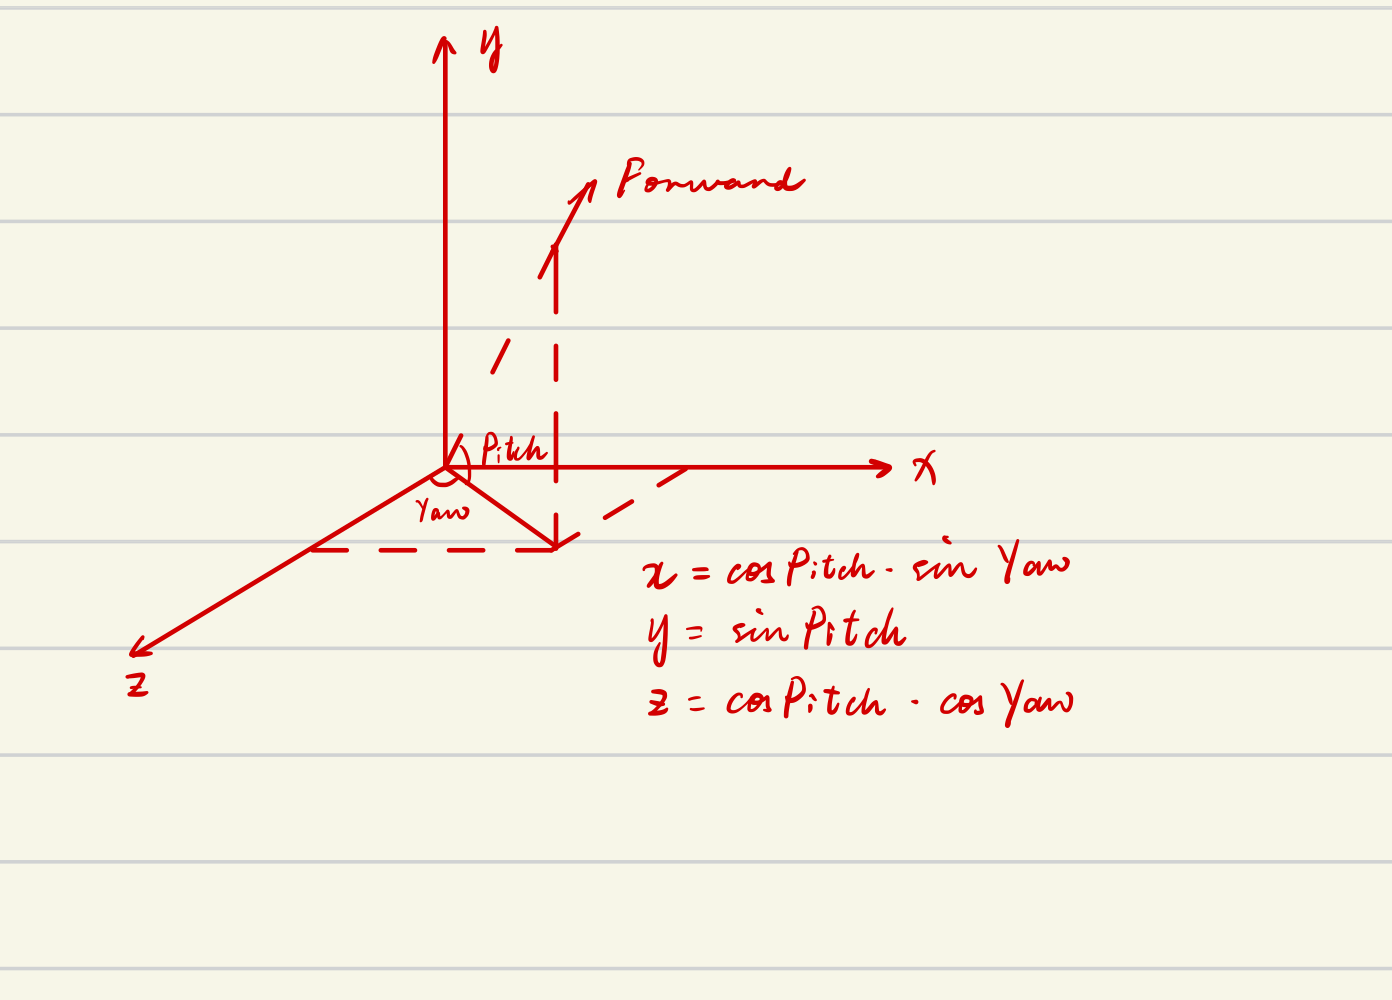 y
Forward
Pitch
x
Yaw
x = cos Pitch · sin Yaw
y = sin Pitch
z
z = cos Pitch · cos Yaw